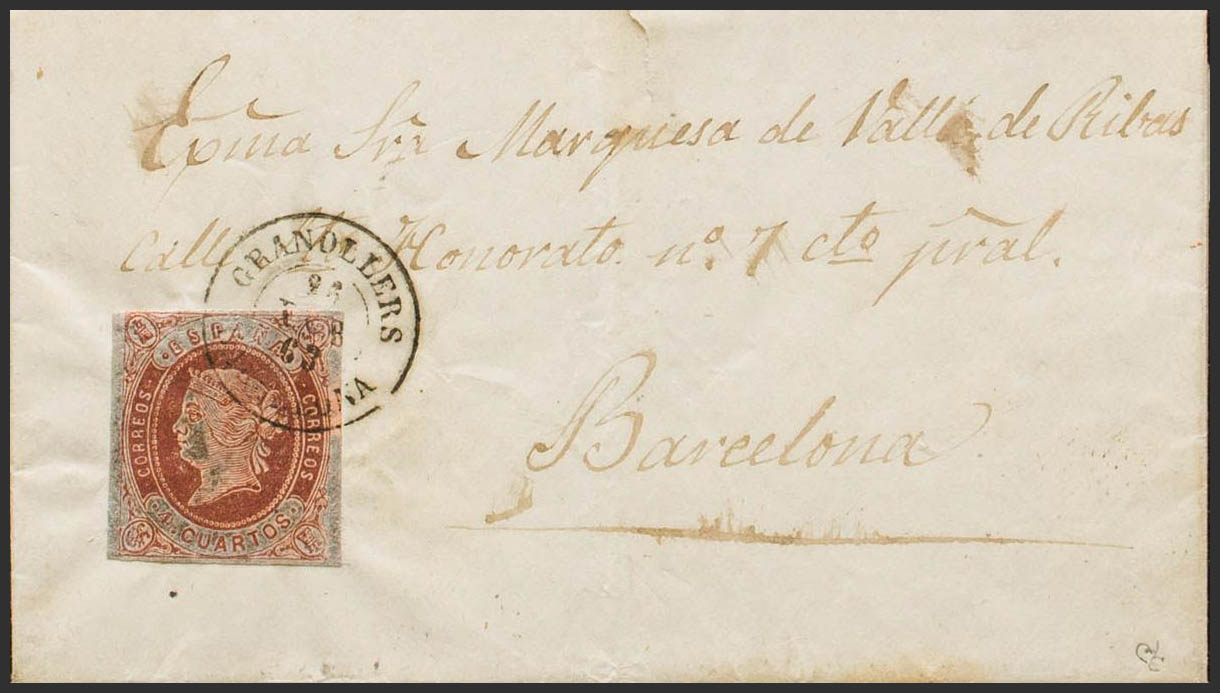 Exma Sra Marquesa de Valle de Ribas
Calle Sn Honorato nº. 7 cto pral.
Barcelona
GRANOLLERS
FEB
63
ESPAÑA
CORREOS
CORREOS
4 CUARTOS